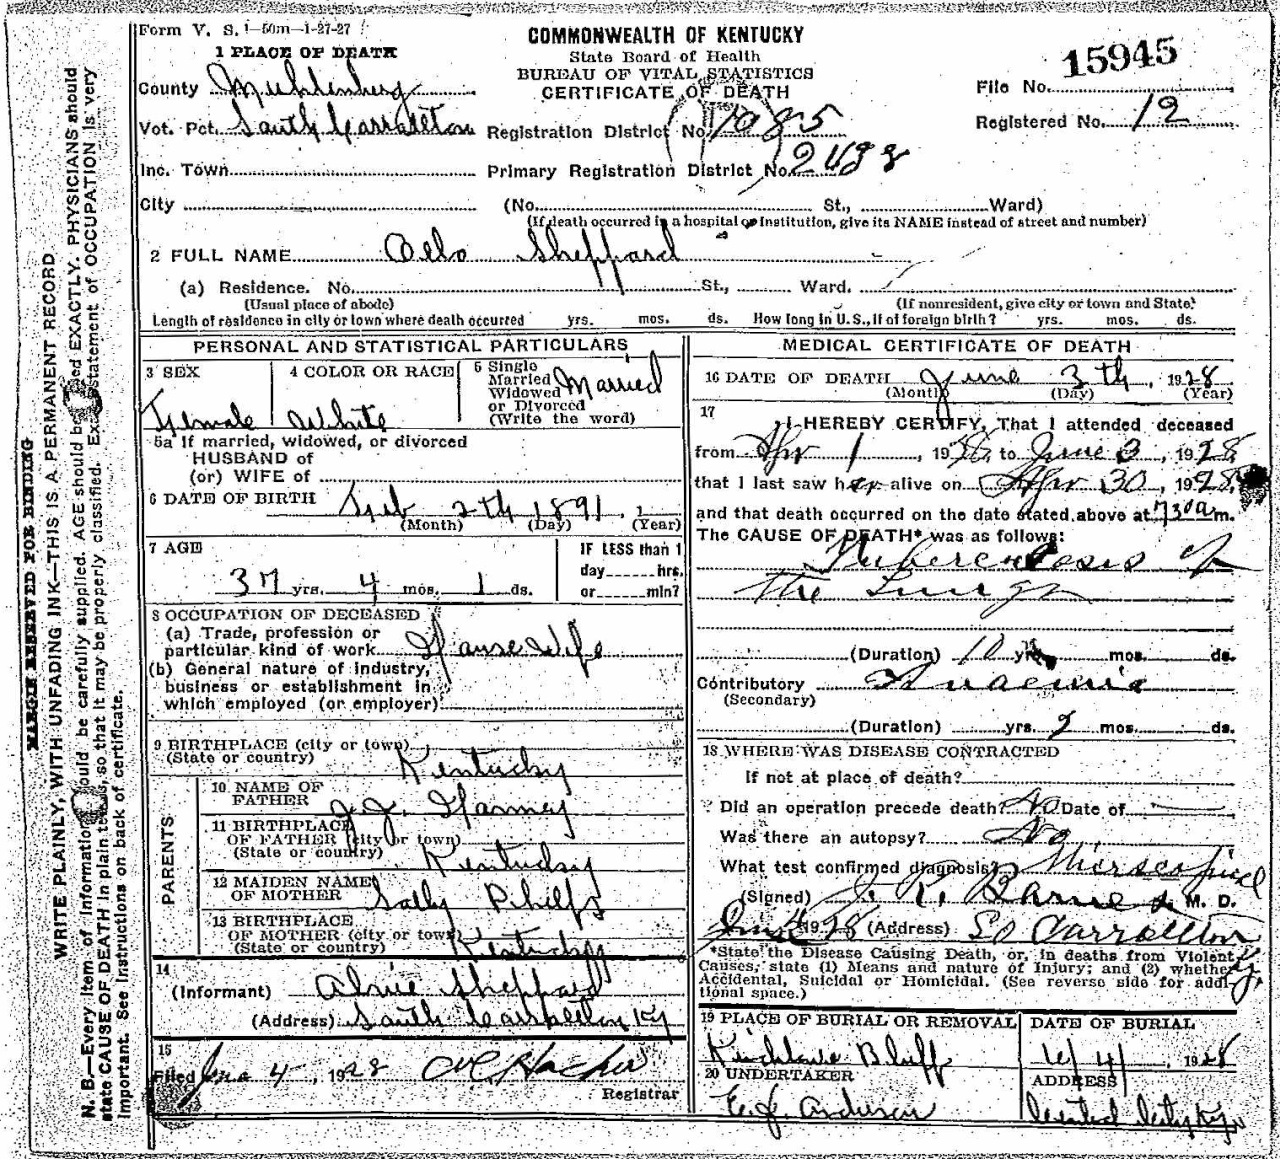 Form V. S. 1-50m-1-27-27
COMMONWEALTH OF KENTUCKY
State Board of Health
BUREAU OF VITAL STATISTICS
CERTIFICATE OF DEATH
1 PLACE OF DEATH
County Muhlenberg
Vot. Pct. South Carrollton
Inc. Town
City
Registration District No. 1085
Primary Registration District No.
File No. 15945
Registered No. 12
(No. St., Ward)
(If death occurred in a hospital or institution, give its NAME instead of street and number)
2 FULL NAME Sheppard
(a) Residence. No. St., Ward.
(Usual place of abode) (If nonresident, give city or town and State)
Length of residence in city or town where death occurred yrs. mos. ds. How long in U.S., if of foreign birth? yrs. mos. ds.
PERSONAL AND STATISTICAL PARTICULARS
3 SEX
Female
4 COLOR OR RACE
White
5 Single
Married
Widowed
or Divorced
(Write the word)
Married
5a If married, widowed, or divorced
HUSBAND of
(or) WIFE of
6 DATE OF BIRTH Feb 2th 1891
(Month) (Day) (Year)
7 AGE
37 yrs. 4 mos. 1 ds.
IF LESS than 1
day hrs.
or min?
8 OCCUPATION OF DECEASED
(a) Trade, profession or
particular kind of work House Wife
(b) General nature of industry,
business or establishment in
which employed (or employer)
9 BIRTHPLACE (city or town)
(State or country) Kentucky
PARENTS
10 NAME OF
FATHER J. J.
11 BIRTHPLACE
OF FATHER (city or town)
(State or country) Kentucky
12 MAIDEN NAME
OF MOTHER Sally Philips
13 BIRTHPLACE
OF MOTHER (city or town)
(State or country) Kentucky
14
(Informant) Sheppard
(Address) South Carrollton Ky
15
Filed June 4, 1928
Registrar
MEDICAL CERTIFICATE OF DEATH
16 DATE OF DEATH June 3th, 1928
(Month) (Day) (Year)
17
I HEREBY CERTIFY, That I attended deceased
from Apr 1, 1928, to June 3, 1928,
that I last saw her alive on Apr 30, 1928,
and that death occurred on the date stated above at 730 a m.
The CAUSE OF DEATH* was as follows:
Tuberculosis of
the Lungs
(Duration) 10 yrs. mos. ds.
Contributory Anaemia
(Secondary)
(Duration) yrs. mos. ds.
18 WHERE WAS DISEASE CONTRACTED
If not at place of death?
Did an operation precede death? No Date of
Was there an autopsy? No
What test confirmed diagnosis? Microscopical
(Signed) Barnes M. D.
June 4 1928 (Address) So Carrollton
Ky.
*State the Disease Causing Death, or, in deaths from Violent
Causes, state (1) Means and nature of Injury; and (2) whether
Accidental, Suicidal or Homicidal. (See reverse side for addi-
tional space.)
19 PLACE OF BURIAL OR REMOVAL
Bluff
DATE OF BURIAL
6/4, 1928
20 UNDERTAKER
E. J. Anderson
ADDRESS
Central City Ky
MARGIN RESERVED FOR BINDING
WRITE PLAINLY, WITH UNFADING INK—THIS IS A PERMANENT RECORD
N. B.—Every item of information should be carefully supplied. AGE should be stated EXACTLY. PHYSICIANS should
state CAUSE OF DEATH in plain terms, so that it may be properly classified. Exact statement of OCCUPATION is very
important. See instructions on back of certificate.